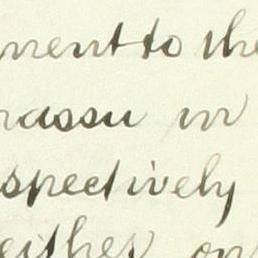 ment to the
nassu in
spectively
either on